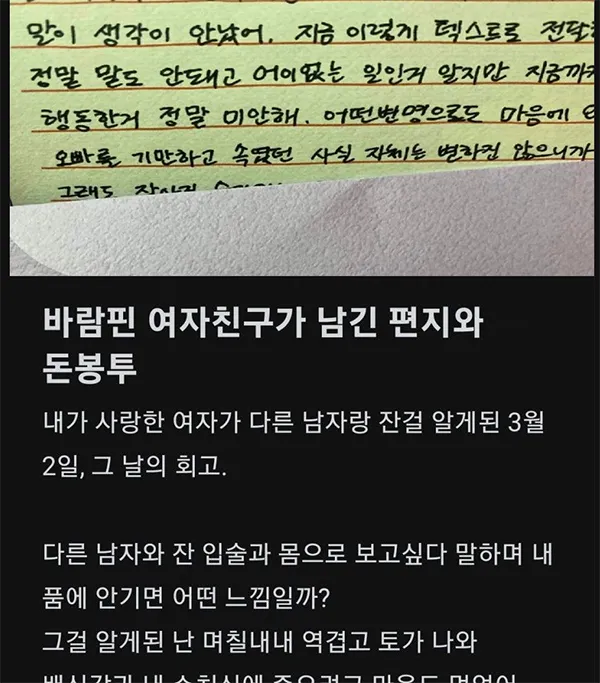 말이 생각이 안났어. 지금 이렇게 텍스트로 전달
정말 말도 안돼고 어이없는 일인거 알지만 지금까
행동한거 정말 미안해. 어떤변명으로도 마음에
오빠를 기만하고 속였던 사실 자체는 변하진 않으니까
그래도
바람핀 여자친구가 남긴 편지와
돈봉투
내가 사랑한 여자가 다른 남자랑 잔걸 알게된 3월
2일, 그 날의 회고.
다른 남자와 잔 입술과 몸으로 보고싶다 말하며 내
품에 안기면 어떤 느낌일까?
그걸 알게된 난 며칠내내 역겹고 토가 나와